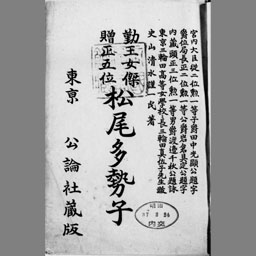 宮内大臣従二位勲一等子爵田中光顕公題字
爵位局長正二位勲一等公爵岩倉具定公題字
内蔵頭正三位勲一等男爵渡邊千秋公題詠
東京三輪田高等女学校長三輪田真佐子先生叙
史山清水謹一氏著
勤王女傑
贈正五位
松尾多勢子
東京 公論社蔵版
内交